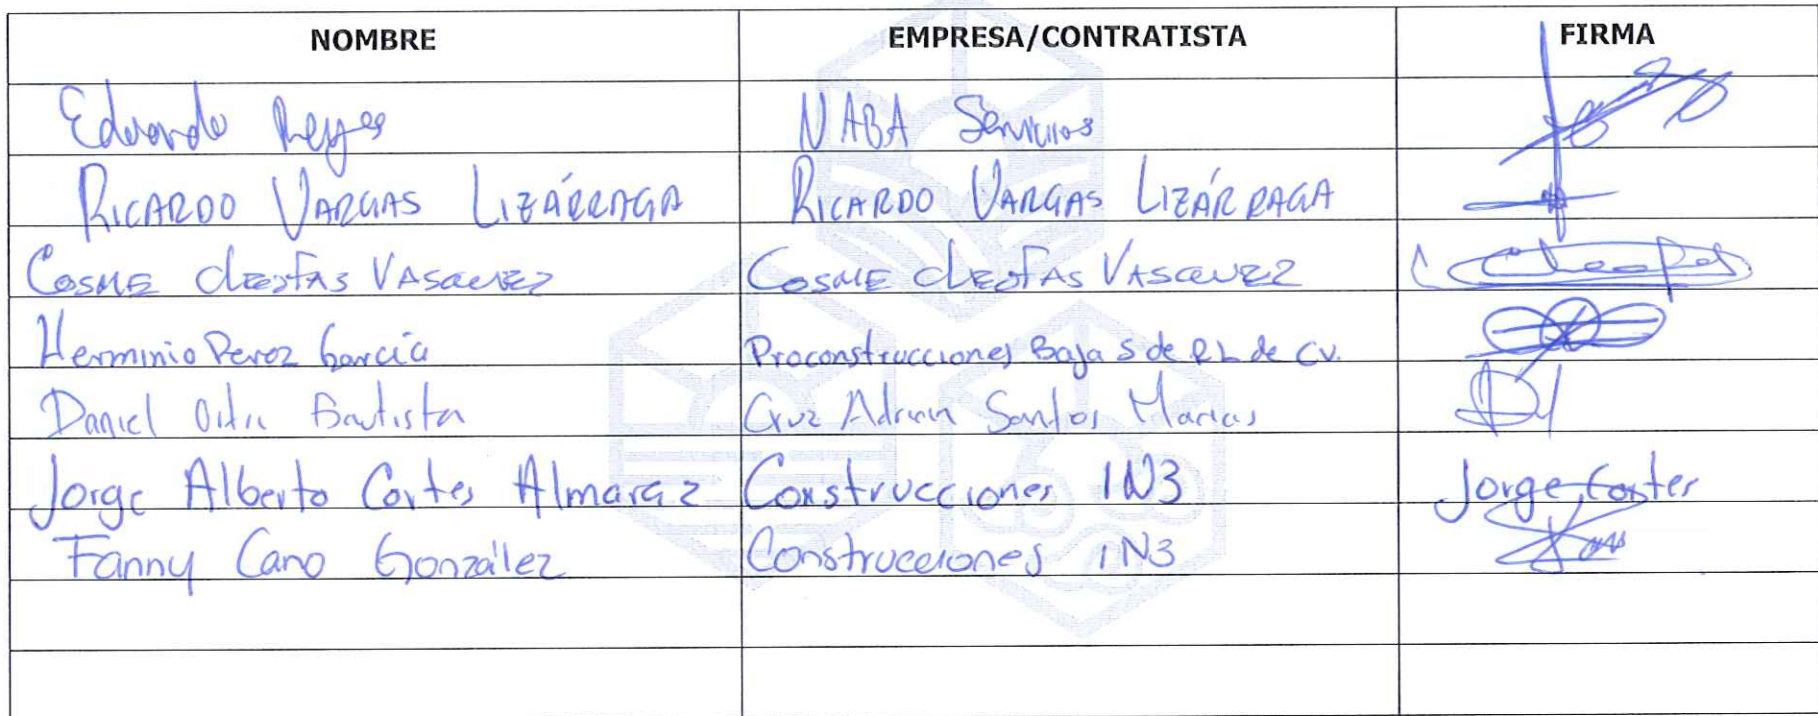 NOMBRE EMPRESA/CONTRATISTA FIRMA
Eduardo Reyes NABA Servicios
RICARDO VARGAS LIZÁRRAGA RICARDO VARGAS LIZÁRRAGA
COSME CLEOFAS VASQUEZ COSME CLEOFAS VASQUEZ Cleofas
Herminio Perez García Proconstrucciones Baja S de RL de CV.
Daniel Bautista Cruz Adrian Santos Marias
Jorge Alberto Cortes Almaraz Construcciones IN3 Jorge Cortes
Fanny Cano González Construcciones IN3